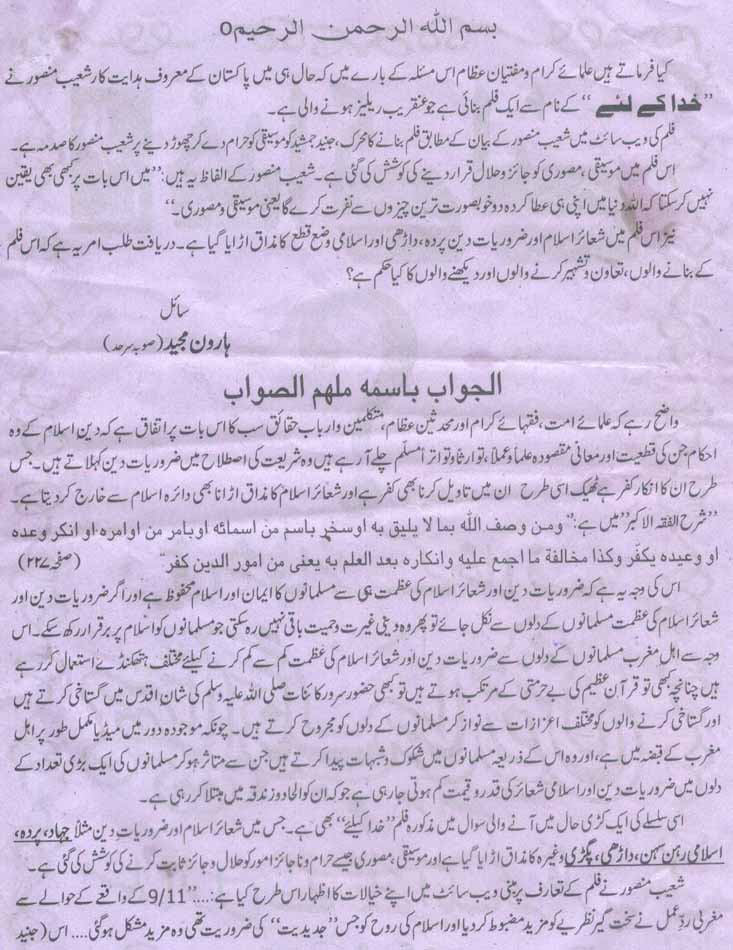 بسم اللہ الرحمن الرحیم o
کیا فرماتے ہیں علمائے کرام و مفتیان عظام اس مسئلہ کے بارے میں کہ حال ہی میں پاکستان کے معروف ہدایت کار شعیب منصور نے
”خدا کے لئے“ کے نام سے ایک فلم بنائی ہے جو عنقریب ریلیز ہونے والی ہے۔
فلم کی ویب سائٹ میں شعیب منصور کے بیان کے مطابق فلم بنانے کا محرک، جنید جمشید کو موسیقی کو حرام دے کر چھوڑ دینے پر شعیب منصور کا صدمہ ہے۔
اس فلم میں موسیقی، مصوری کو جائز و حلال قرار دینے کی کوشش کی گئی ہے۔ شعیب منصور کے الفاظ یہ ہیں: ”میں اس بات پر کبھی بھی یقین
نہیں کر سکتا کہ اللہ دنیا میں اپنی ہی عطا کردہ دو خوبصورت ترین چیزوں سے نفرت کرے گا یعنی موسیقی و مصوری۔“
نیز اس فلم میں شعائر اسلام اور ضروریات دین پردہ، داڑھی اور اسلامی وضع قطع کا مذاق اڑایا گیا ہے۔ دریافت طلب امر یہ ہے کہ اس فلم
کے بنانے والوں، تعاون و تشہیر کرنے والوں اور دیکھنے والوں کا کیا حکم ہے؟
سائل
ہارون مجید (صوبہ سرحد)
الجواب باسمہ ملھم الصواب
واضح رہے کہ علمائے امت، فقہائے کرام اور محدثین عظام، متکلمین و ارباب حقائق سب کا اس بات پر اتفاق ہے کہ دین اسلام کے وہ
احکام جن کی قطعیت اور معانی مقصودہ علماً و عملاً، توارثاً و تواتراً مسلّم چلے آ رہے ہیں وہ شریعت کی اصطلاح میں ضروریات دین کہلاتے ہیں۔ جس
طرح ان کا انکار کفر ہے ٹھیک اسی طرح ان میں تاویل کرنا بھی کفر ہے اور شعائر اسلام کا مذاق اڑانا بھی دائرہ اسلام سے خارج کر دیتا ہے۔
”شرح الفقہ الاکبر“ میں ہے: ”ومن وصف اللہ بما لا یلیق بہ اوسخر باسم من اسمائہ اوبامر من اوامرہ او انکر وعدہ
او وعیدہ یکفر وکذا مخالفۃ ما اجمع علیہ وانکارہ بعد العلم بہ یعنی من امور الدین کفر“ (صفحہ ۲۲۷)
اس کی وجہ یہ ہے کہ ضروریات دین اور شعائر اسلام کی عظمت ہی سے مسلمانوں کا ایمان اور اسلام محفوظ ہے اور اگر ضروریات دین اور
شعائر اسلام کی عظمت مسلمانوں کے دلوں سے نکل جائے تو پھر وہ دینی غیرت و حمیت باقی نہیں رہ سکتی جو مسلمانوں کو اسلام پر برقرار رکھ سکے۔ اس
وجہ سے اہل مغرب مسلمانوں کے دلوں سے ضروریات دین اور شعائر اسلام کی عظمت کم سے کم کرنے کیلئے مختلف ہتھکنڈے استعمال کر رہے
ہیں چنانچہ کبھی تو قرآن عظیم کی بے حرمتی کے مرتکب ہوتے ہیں تو کبھی حضور سرور کائنات صلی اللہ علیہ وسلم کی شان اقدس میں گستاخی کرتے ہیں
اور گستاخی کرنے والوں کو مختلف اعزازات سے نواز کر مسلمانوں کے دلوں کو مجروح کرتے ہیں۔ چونکہ موجودہ دور میں میڈیا مکمل طور پر اہل
مغرب کے قبضہ میں ہے، اور وہ اس کے ذریعہ مسلمانوں میں شکوک و شبہات پیدا کرتے ہیں جن سے متاثر ہو کر مسلمانوں کی ایک بڑی تعداد کے
دلوں میں ضروریات دین اور اسلامی شعائر کی قدر و قیمت کم ہوتی جا رہی ہے جو کہ ان کو الحاد و زندقہ میں مبتلا کر رہی ہے۔
اسی سلسلے کی ایک کڑی حال میں آنے والی سوال میں مذکورہ فلم ”خدا کیلئے“ بھی ہے۔ جس میں شعائر اسلام اور ضروریات دین مثلاً جہاد، پردہ،
اسلامی رہن سہن، داڑھی، پگڑی وغیرہ کا مذاق اڑایا گیا ہے اور موسیقی، مصوری جیسے حرام و ناجائز امور کو حلال و جائز ثابت کرنے کی کوشش کی گئی ہے۔
شعیب منصور نے فلم کے تعارف پر مبنی ویب سائٹ میں اپنے خیالات کا اظہار اس طرح کیا ہے:....”9/11 کے واقعے کے حوالے سے
مغربی ردّعمل نے سخت گیر نظریے کو مزید مضبوط کر دیا اور اسلام کی روح کو جس ”جدیدیت“ کی ضرورت تھی وہ مزید مشکل ہو گئی.... اس (جنید